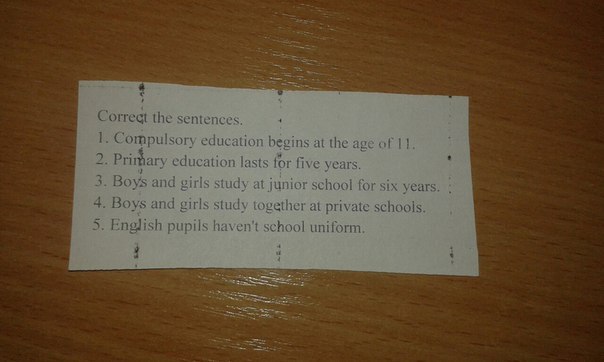 Correct the sentences.
1. Compulsory education begins at the age of 11.
2. Primary education lasts for five years.
3. Boys and girls study at junior school for six years.
4. Boys and girls study together at private schools.
5. English pupils haven't school uniform.